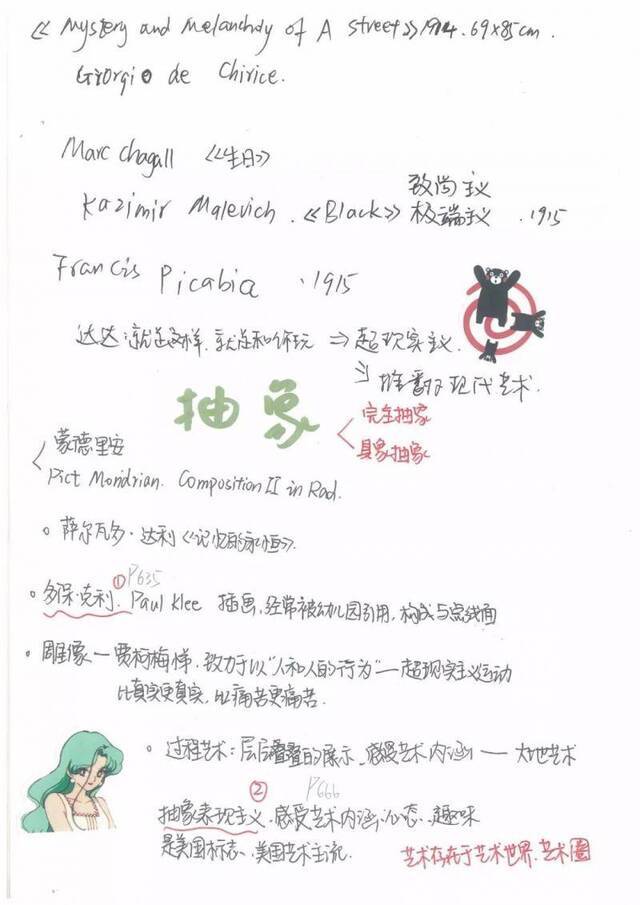 《Mystery and Melancholy of A street》1914.69×85cm.
Giorgio de Chirice.
Marc Chagall 《生日》
致尚主义
Kazimir Malevich.《Black》极端主义.1915
Francis Picabia .1915
达达:就是这样,就是和你玩 ⇒ 超现实主义.
推翻了现代艺术.
抽象
完全抽象
具象抽象
蒙德里安
Pict Mondrian. Composition II in Rad.
萨尔瓦多·达利《记忆的永恒》.
① P635
多保·克利. Paul Klee 插画,经常被幼儿园引用,构成与点线面
雕像—贾柯梅悌,致力于以"人和人的行为"—超现实主义运动
比真实更真实,比痛苦更痛苦.
过程艺术:层层叠叠的展示、感受艺术内涵——大地艺术
② P666
抽象表现主义、感受艺术内涵心态、趣味
是美国标志、美国艺术主流.
艺术存在于艺术世界.艺术圈